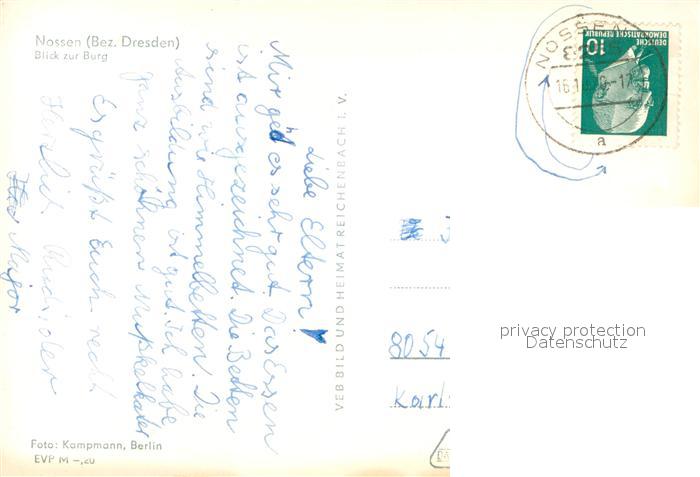 Nossen (Bez. Dresden)
Blick zur Burg
Liebe Eltern!
Mir geht es sehr gut. Das Essen
ist ausgezeichnet. Die Betten
sind wie Himmelbetten. Die
Ausbildung ist gut. Ich habe
ganz schönen Muskelkater
Es grüßt Euch recht
Herzlich Rudi, der
Major
VEB BILD UND HEIMAT REICHENBACH I. V.
Foto: Kampmann, Berlin
EVP M -,20
NOSSEN
8255
a
DEUTSCHE
DEMOKRATISCHE REPUBLIK
10
8054
Karl
privacy protection
Datenschutz